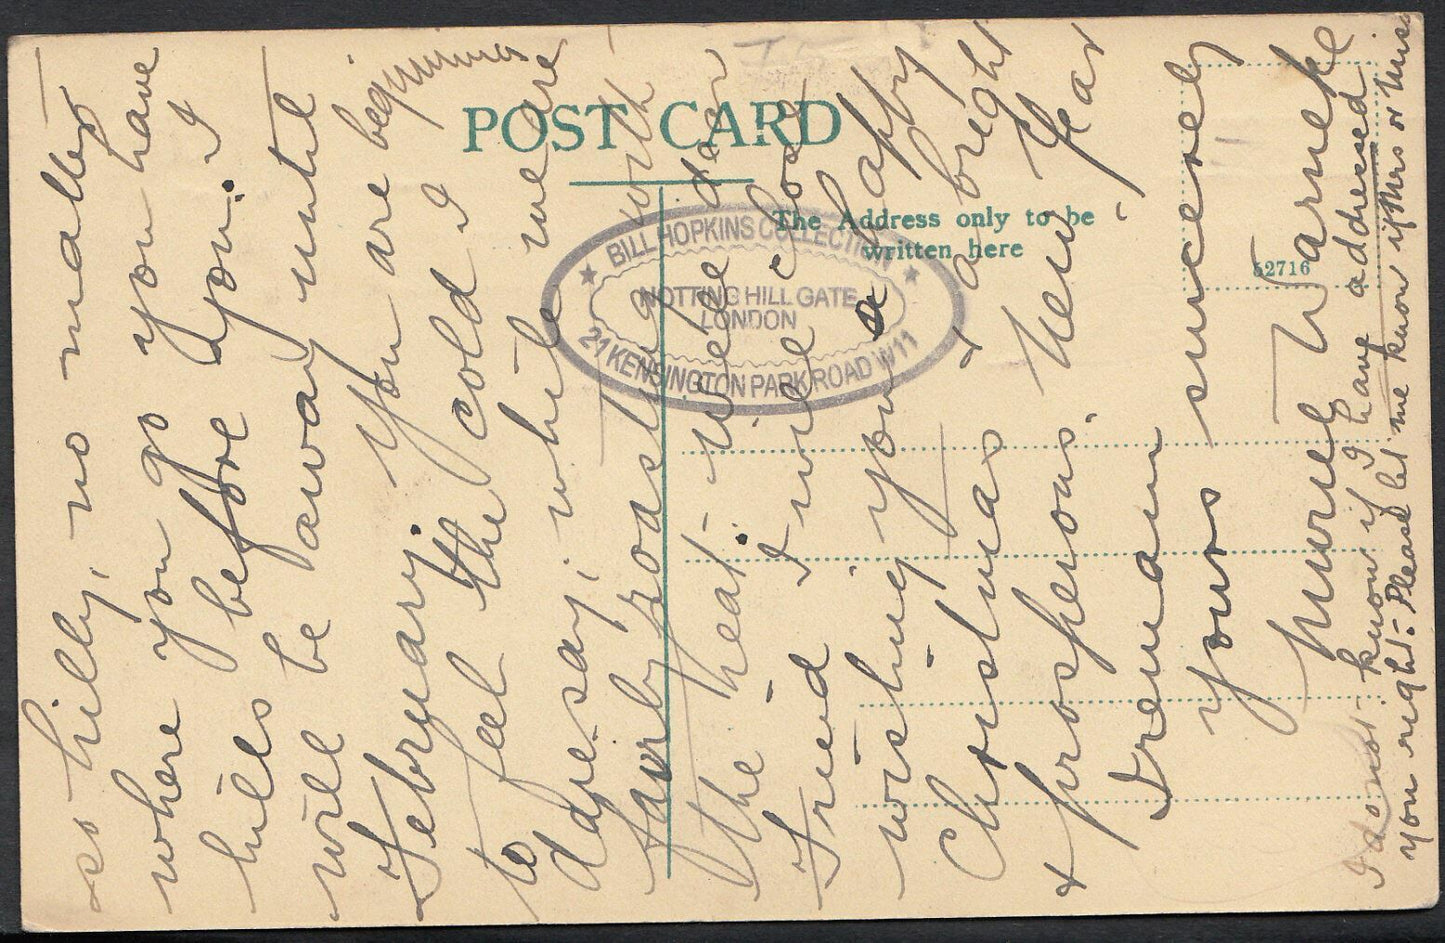 POST CARD
The Address only to be
written here
52716
BILL HOPKINS COLLECTION
NOTTING HILL GATE
LONDON
21 KENSINGTON PARK ROAD W11
so hilly, no matter
where you go you have
hills before you. I
will be away until
February. You are beginning
to feel the cold I
daresay, while we are
fairly roasting with
the heat. Well dear
Friend I will close
wishing you a happy
Christmas & a bright
& prosperous New Year
I remain
yours sincerely
Muriel Warneke
I do not know if I have addressed
you right = Please let me know if Mrs or Miss